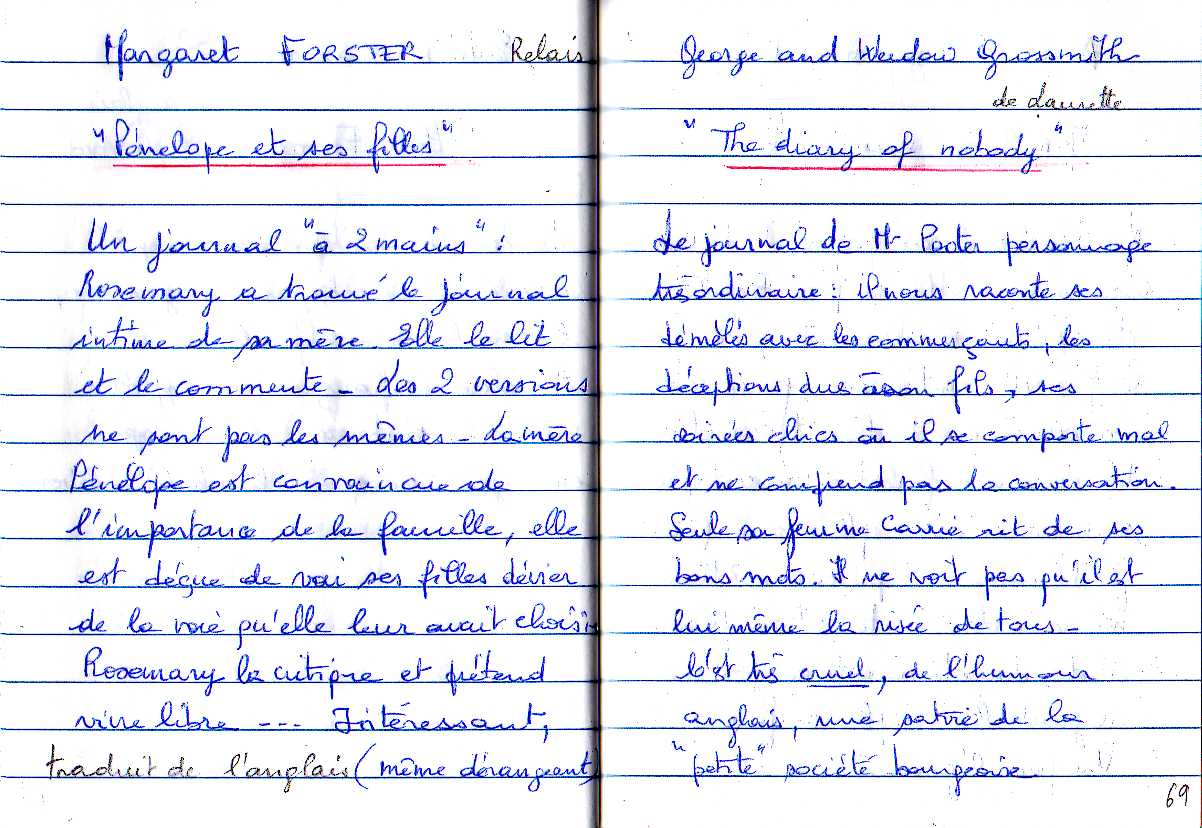 Margaret FORSTER Relais
"Pénelope et ses filles"
Un journal "à 2 mains" :
Rosemary a trouvé le journal
intime de sa mère. Elle le lit
et le commente - Les 2 versions
ne sont pas les mêmes - La mère
Pénélope est convaincue de
l'importance de la famille, elle
est déçue de voir ses filles dévier
de la voie qu'elle leur avait choisi
Rosemary la critique et prétend
vivre libre --- Intéressant,
traduit de l'anglais (même dérangeant)
George and Weedow Grossmith
de Laurette
"The diary of nobody"
Le journal de Mr Pooter personnage
très ordinaire : il nous raconte ses
démêlés avec les commerçants, les
déceptions dues à son fils, ses
soirées chics où il se comporte mal
et ne comprend pas la conversation.
Seule sa femme Carrie rit de ses
bons mots. Il ne voit pas qu'il est
lui même la risée de tous -
C'est très cruel, de l'humour
anglais, une satire de la
"petite" société bourgeoise
69